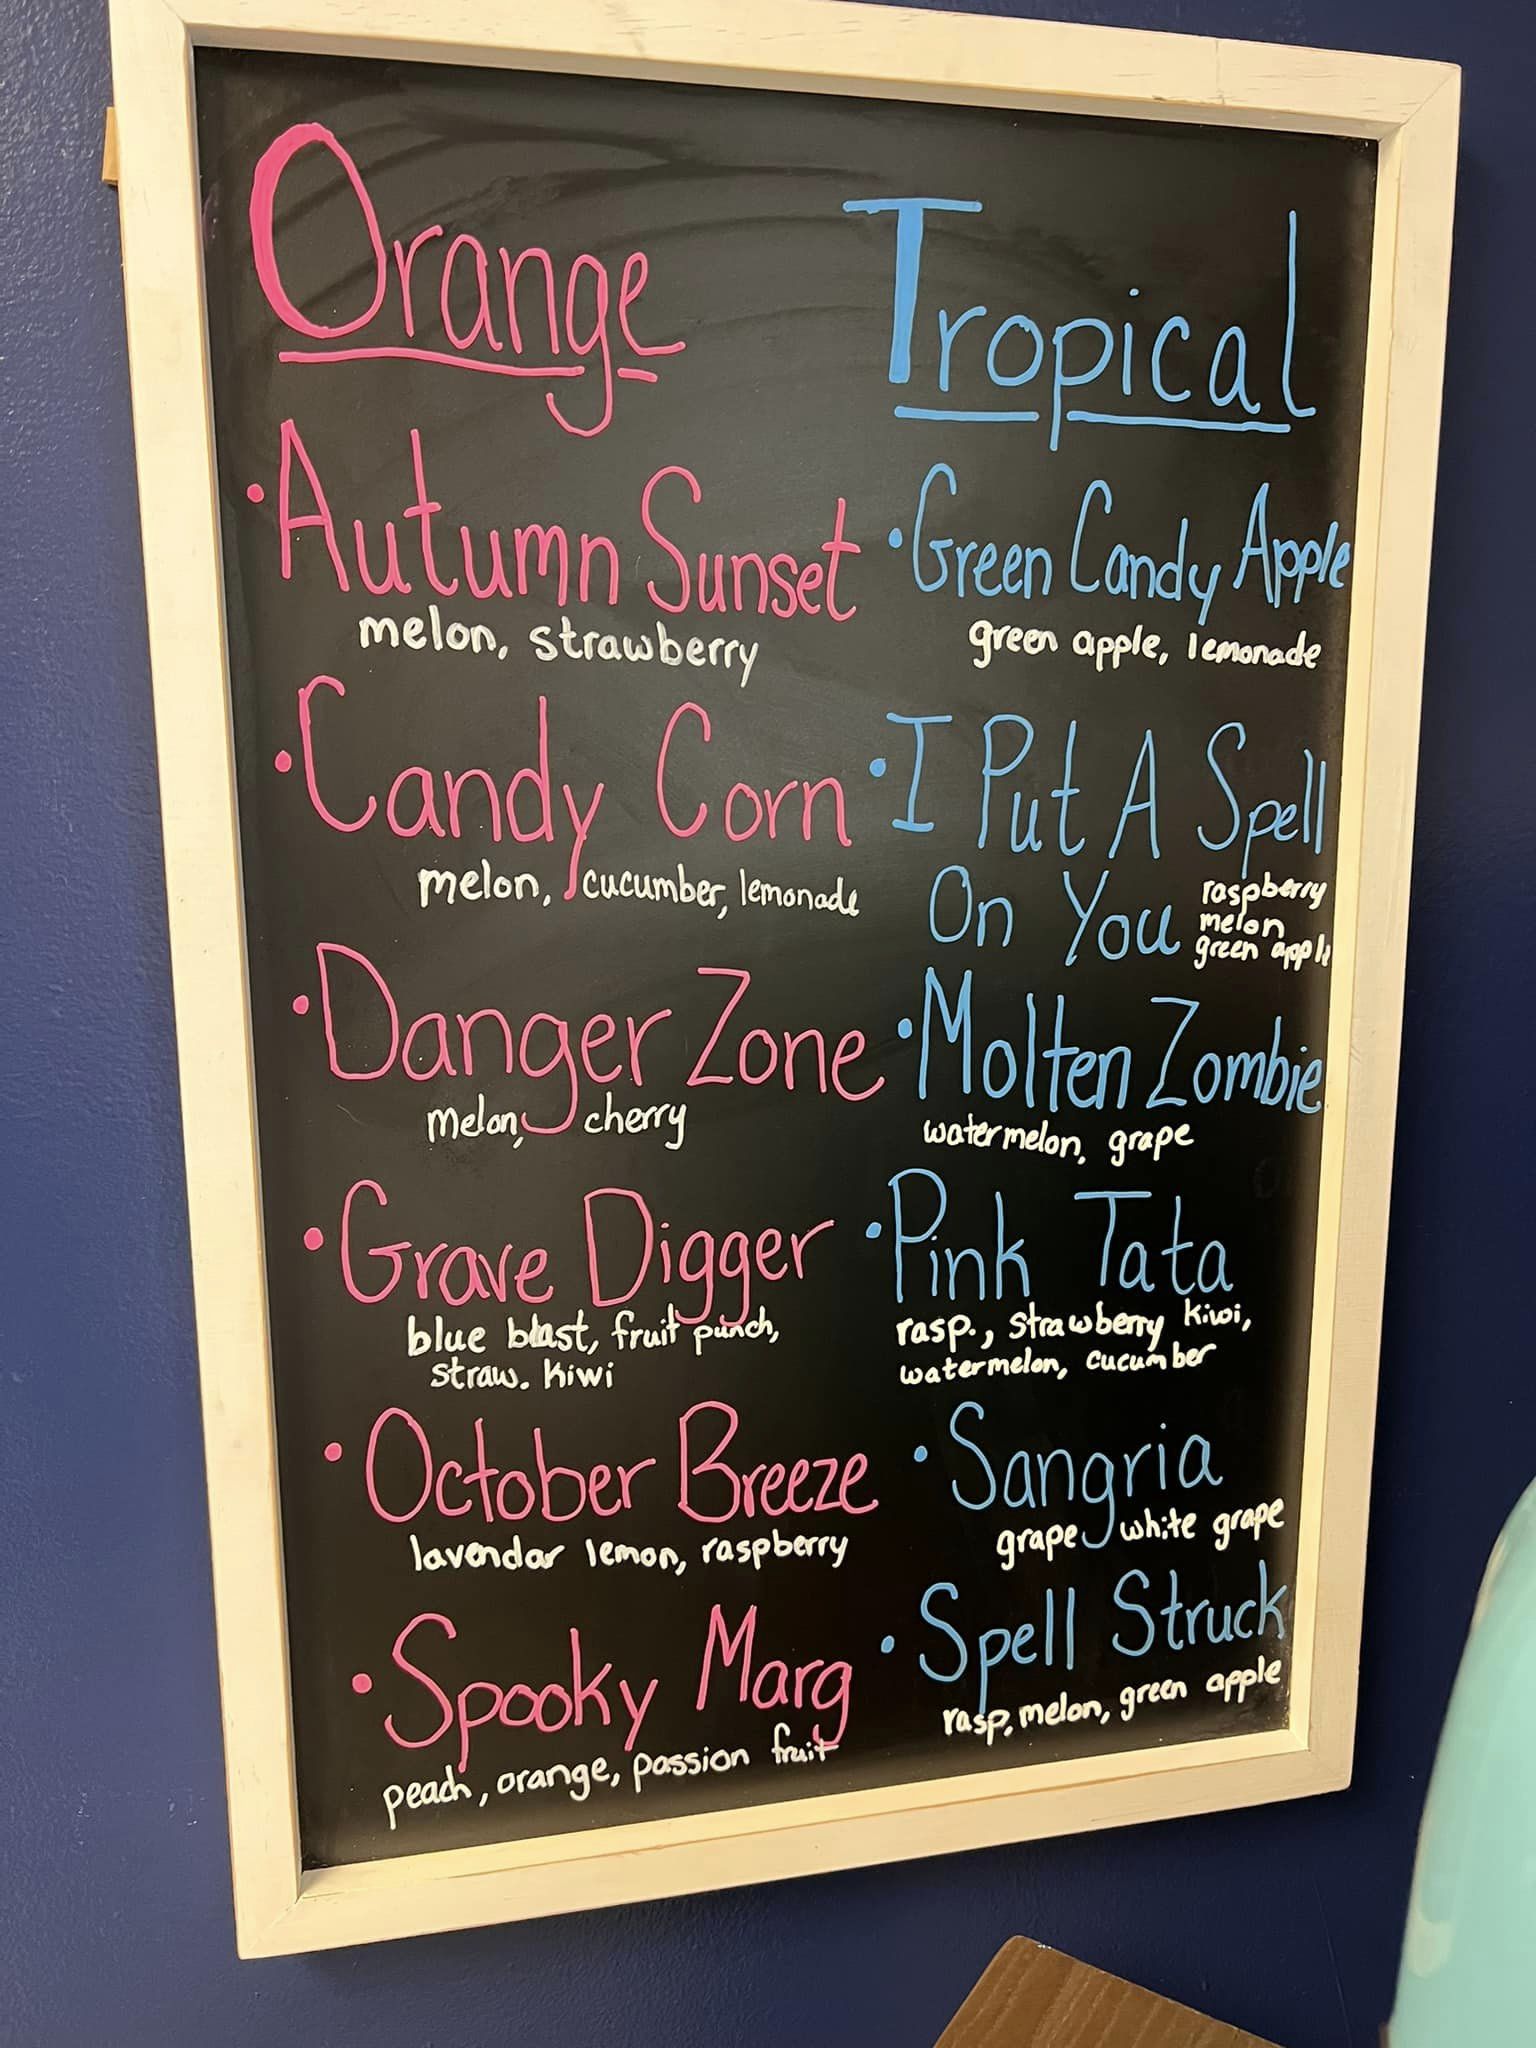 Orange
• Autumn Sunset
melon, strawberry
• Candy Corn
melon, cucumber, lemonade
• Danger Zone
melon, cherry
• Grave Digger
blue blast, fruit punch,
straw. kiwi
• October Breeze
lavendar lemon, raspberry
• Spooky Marg
peach, orange, passion fruit
Tropical
• Green Candy Apple
green apple, lemonade
• I Put A Spell
On You
raspberry
melon
green apple
• Molten Zombie
watermelon, grape
• Pink Tata
rasp., strawberry kiwi,
watermelon, cucumber
• Sangria
grape white grape
• Spell Struck
rasp, melon, green apple